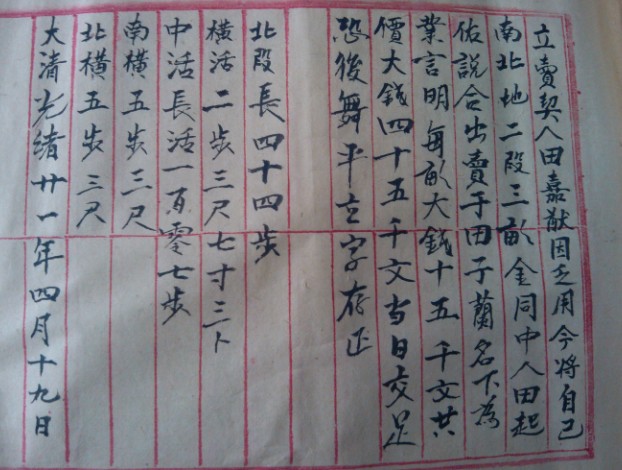 立賣契人田嘉猷因乏用今將自己
南北地二段三畝仝同中人田起
佑説合出賣于田子蘭名下為
業言明每畝大錢十五千文共
價大錢四十五千文當日交足
恐後舞平立字存正
北段長四十四步
橫活二步三尺七寸三卜
中活長活一百零七步
南橫五步三尺
北橫五步三尺
大清光绪廿一年四月十九日